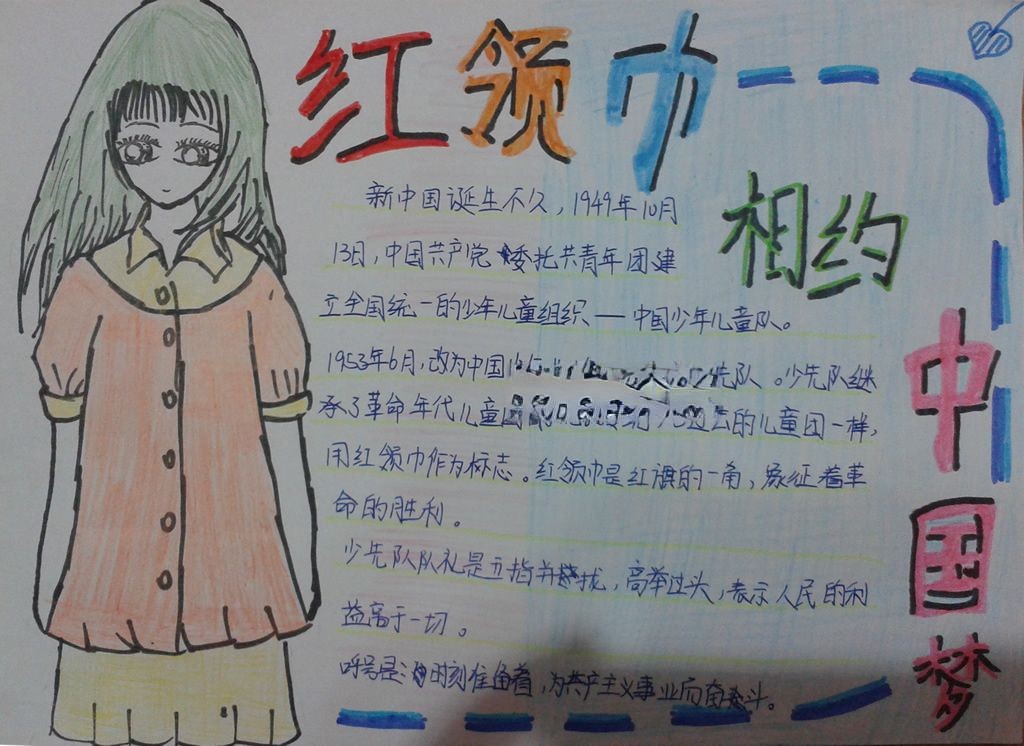 红领巾
相约
中国梦
新中国诞生不久,1949年10月
13日,中国共产党委托共青年团建
立全国统一的少年儿童组织——中国少年儿童队。
1953年6月,改为中国先队。少先队继
承了革命年代儿童的儿童团一样,
用红领巾作为标志。红领巾是红旗的一角,象征着革
命的胜利。
少先队队礼是五指并拢,高举过头,表示人民的利
益高于一切。
呼号是:时刻准备着,为共产主义事业而奋斗。